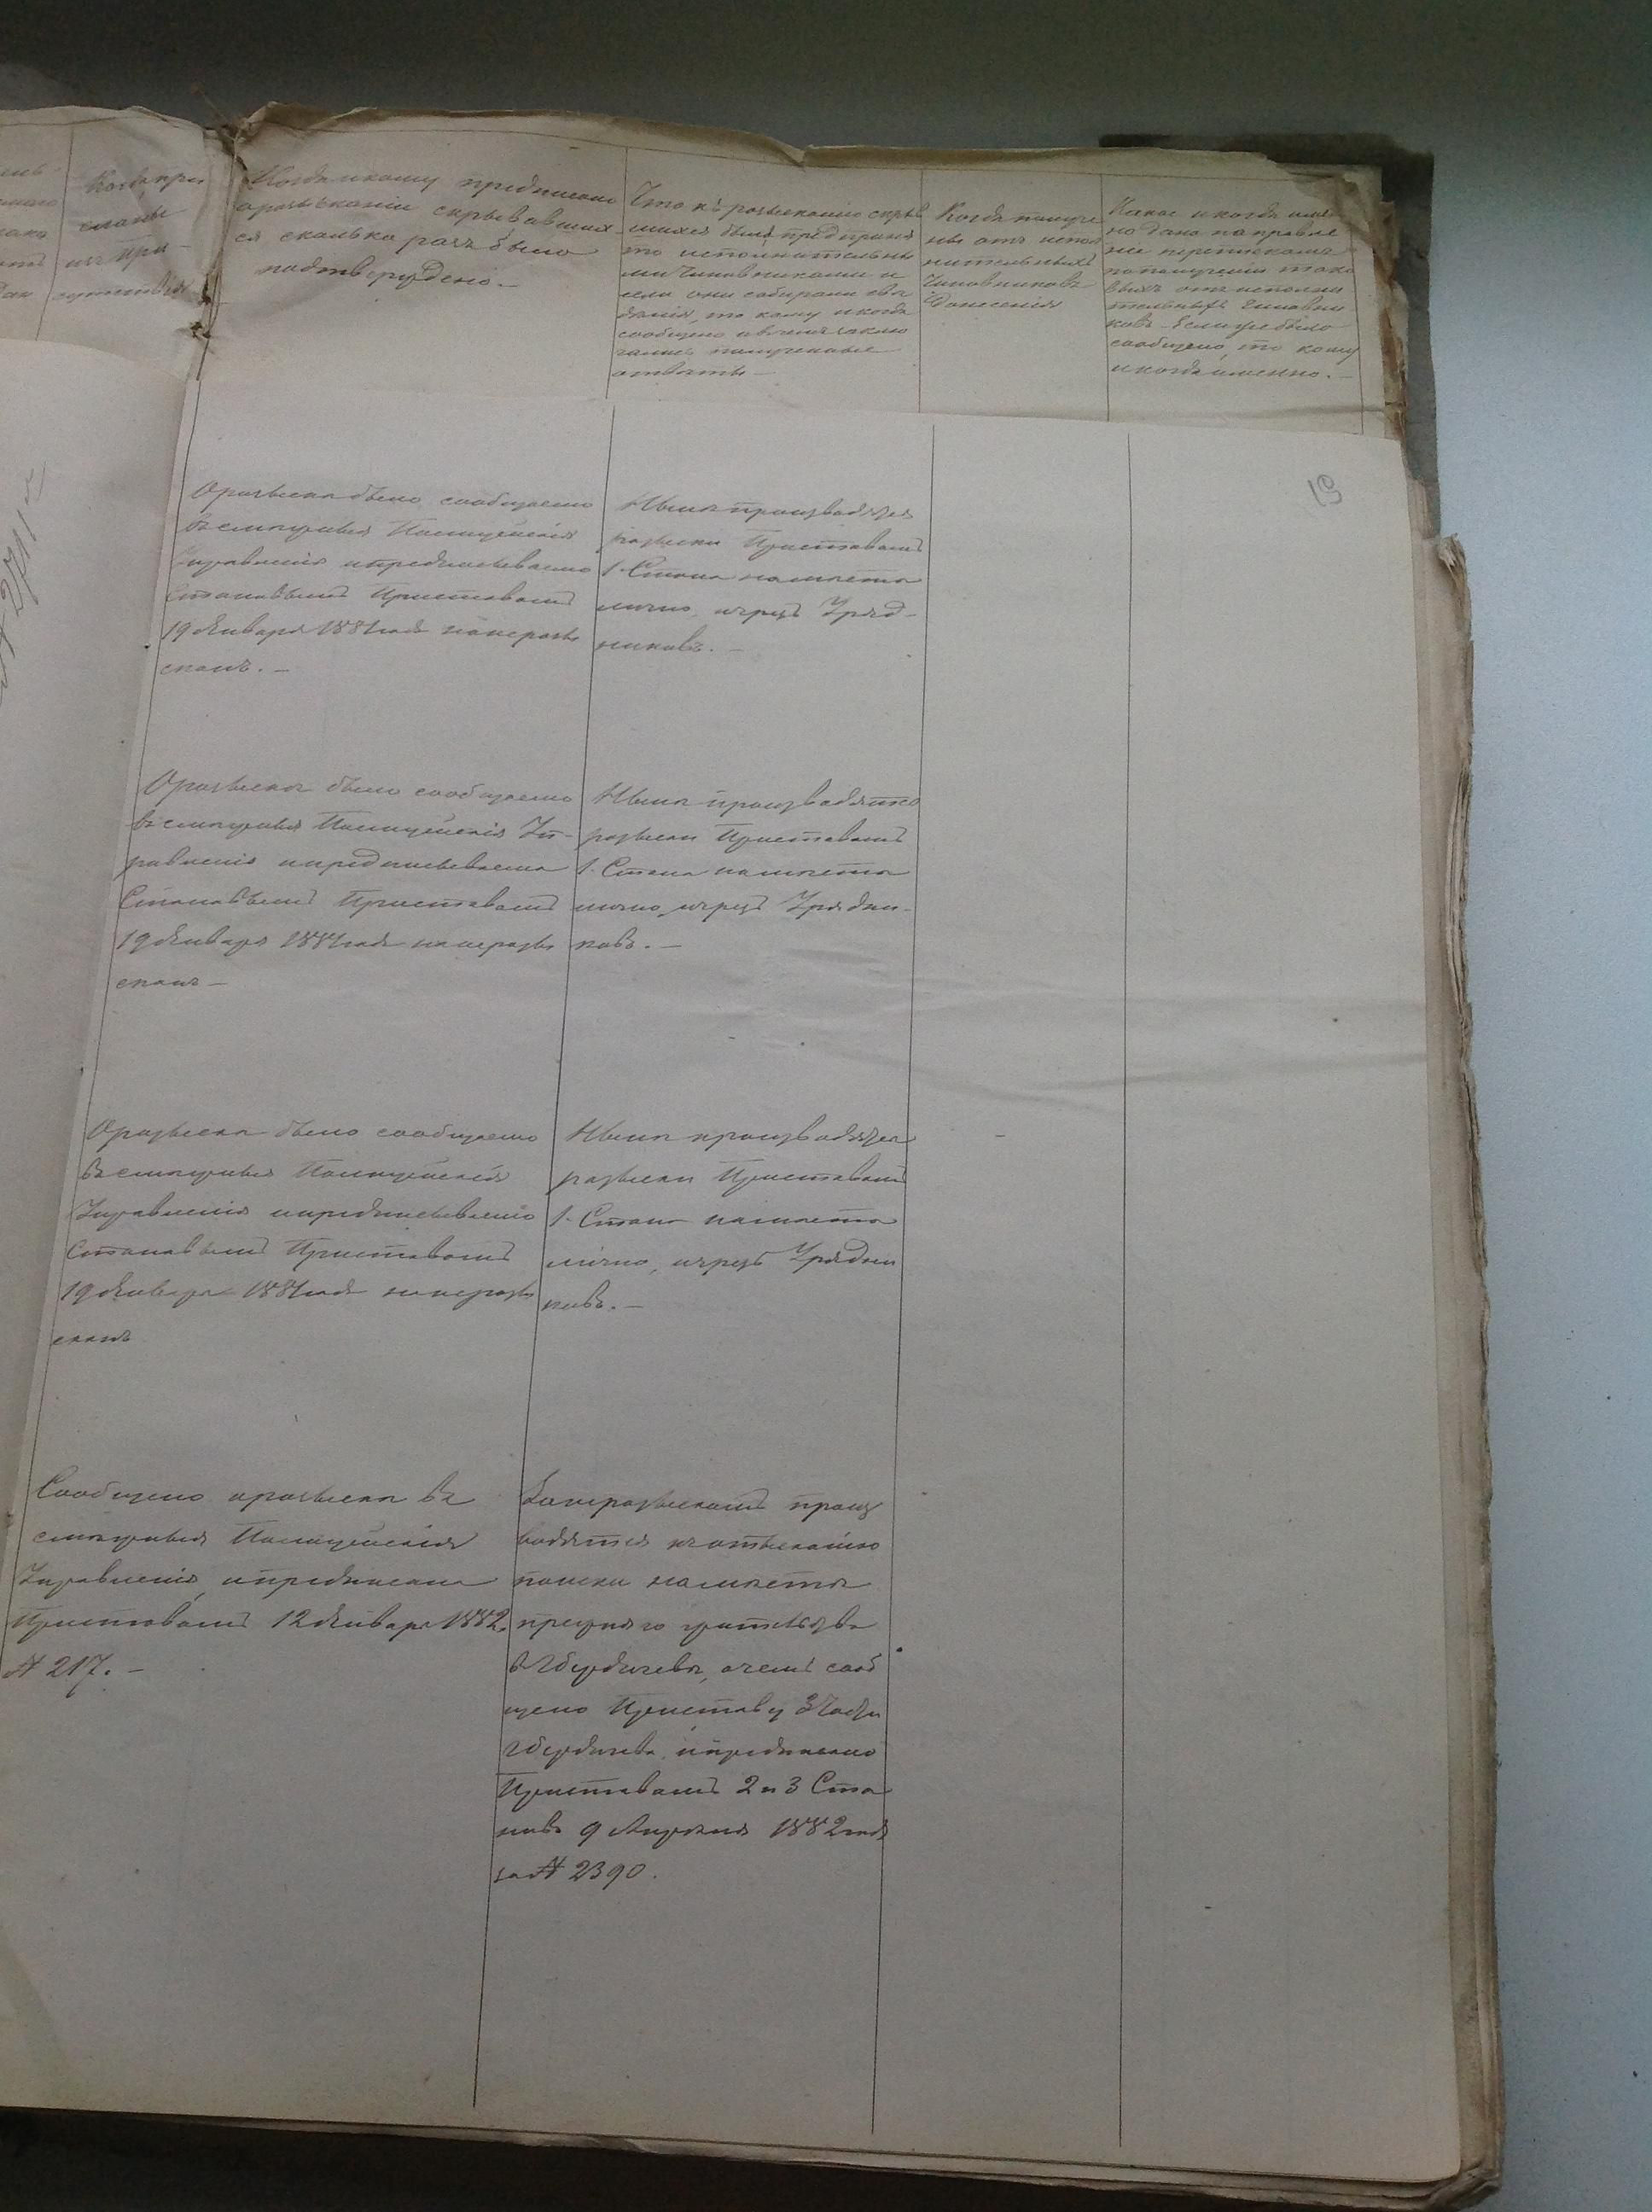 Когда при
сланы
изъ при-
сутствія
Когда и кому предписано
о розысканіи скрывавших-
ся сколько разъ было
подтверждено. —
Что къ розысканію скрыв
шихся было предприня
то исполнительны
ми чиновниками и
если они собирали свѣ
дѣнія, то кому и когда
сообщено и въ чемъ заклю
чались полученные
отвѣты —
Когда получе
ны отъ испол
нительныхъ
Чиновниковъ
донесенія
Какое и когда имен
но дано направле
ніе перепискамъ
по полученіи тако
выхъ отъ исполни
тельныхъ чиновни
ковъ. Если же было
сообщено, то кому
и когда именно. —
19
О розыскѣ было сообщаемо
въ смежныя Полицейскія
Управленія и предписываемо
Становымъ Приставамъ
19 Января 1881 года но не розы
сканъ. —
Нынѣ производятся
розыски Приставомъ
1. Стана на мѣстѣ
лично, и чрезъ Уряд-
никовъ. —
О розыскѣ было сообщаемо
въ смежныя Полицейскія Уп-
равленія и предписываемо
Становымъ Приставамъ
19 Января 1881 года но не розы
сканъ —
Нынѣ производятся
розыски Приставомъ
1. Стана на мѣстѣ
лично, и чрезъ Урядни-
ковъ. —
О розыскѣ было сообщаемо
въ смежныя Полицейскія
Управленія и предписываемо
Становымъ Приставамъ
19 Января 1881 года но не розы
сканъ
Нынѣ производятся
розыски Приставомъ
1. Стана на мѣстѣ
лично, и чрезъ Урядни
ковъ. —
Сообщено о розыскѣ въ
смежныя Полицейскія
Управленія, и предписано
Приставамъ 12 Января 1882.
№ 217. —
За нерозысканіемъ произ
водятся къ отысканію
поиски на мѣстѣ
прежняго жительства
въ г Бердичевѣ, о чемъ сооб
щено Приставу 3 Части
г Бердичева, и предписано
Приставамъ 2 и 3 Ста
новъ 9 Апрѣля 1882 года
за № 2390.